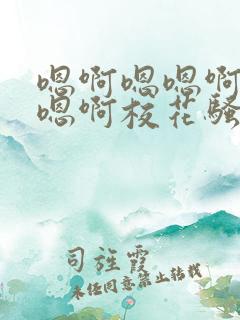 嗯啊嗯嗯啊
嗯啊校花骚
司旌霞
未经同意禁止转载